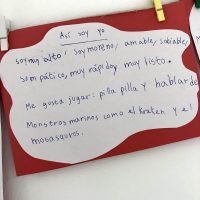 Así soy yo
soy muy alto, soy moreno, amable, sociable,
simpático, muy rápido y muy listo.
Me gusta jugar: pilla pilla y hablar de
Monstros marinos como el Kraken y el
mosasauros.